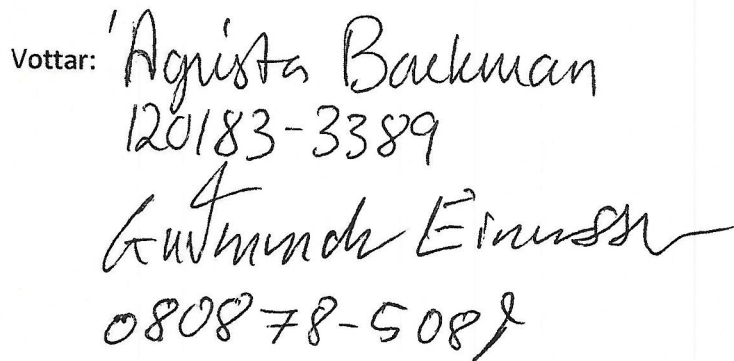 Vottar: Ágústa Backman
120183-3389
Guðmundr Einarsson
080878-5089